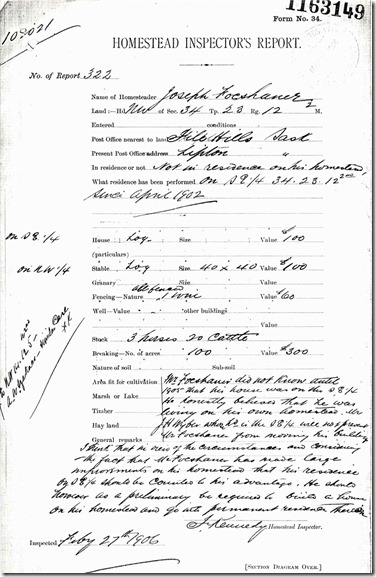 1163149
Form No. 34.
102021
HOMESTEAD INSPECTOR'S REPORT.
No. of Report 322
Name of Homesteader Joseph Focshaner
Land:—Hd NW of Sec. 34 Tp. 23 Rg. 12 2 M.
Entered conditions
Post Office nearest to land File Hills Sask
Present Post Office address Lipton "
In residence or not Not in residence on his homestead
What residence has been performed on SE 1/4 34.23.12 2nd
since April 1902
on SE 1/4 House Log Size Value $100
(particulars)
on NW 1/4 Stable Log Size 40 x 40 Value $100
Granary
Fencing—Nature 1 wire Value $60
Well—Value other buildings
Stock 3 horses 20 cattle
Breaking—No. of acres 100 Value $300
Nature of soil Sub-soil
Area fit for cultivation Mr Focshaner did not know until
Marsh or Lake 1905 that his house was on the SE 1/4
Timber He honestly believes that he was living on his own homestead. Mr
Hay land J H Wyber who is the SE 1/4 will not prevent
General remarks Mr Focshane from moving his building
I think that in view of the circumstances and considering
the fact that Mr Focshane has made large
improvements on his homestead that his residence
on SE 1/4 should be counted to his advantage. He should
however as a preliminary be required to build a house
on his homestead and go into permanent residence thereon
J. Kennedy Homestead Inspector.
Inspected Feby 27th 1906
[SECTION DIAGRAM OVER.]